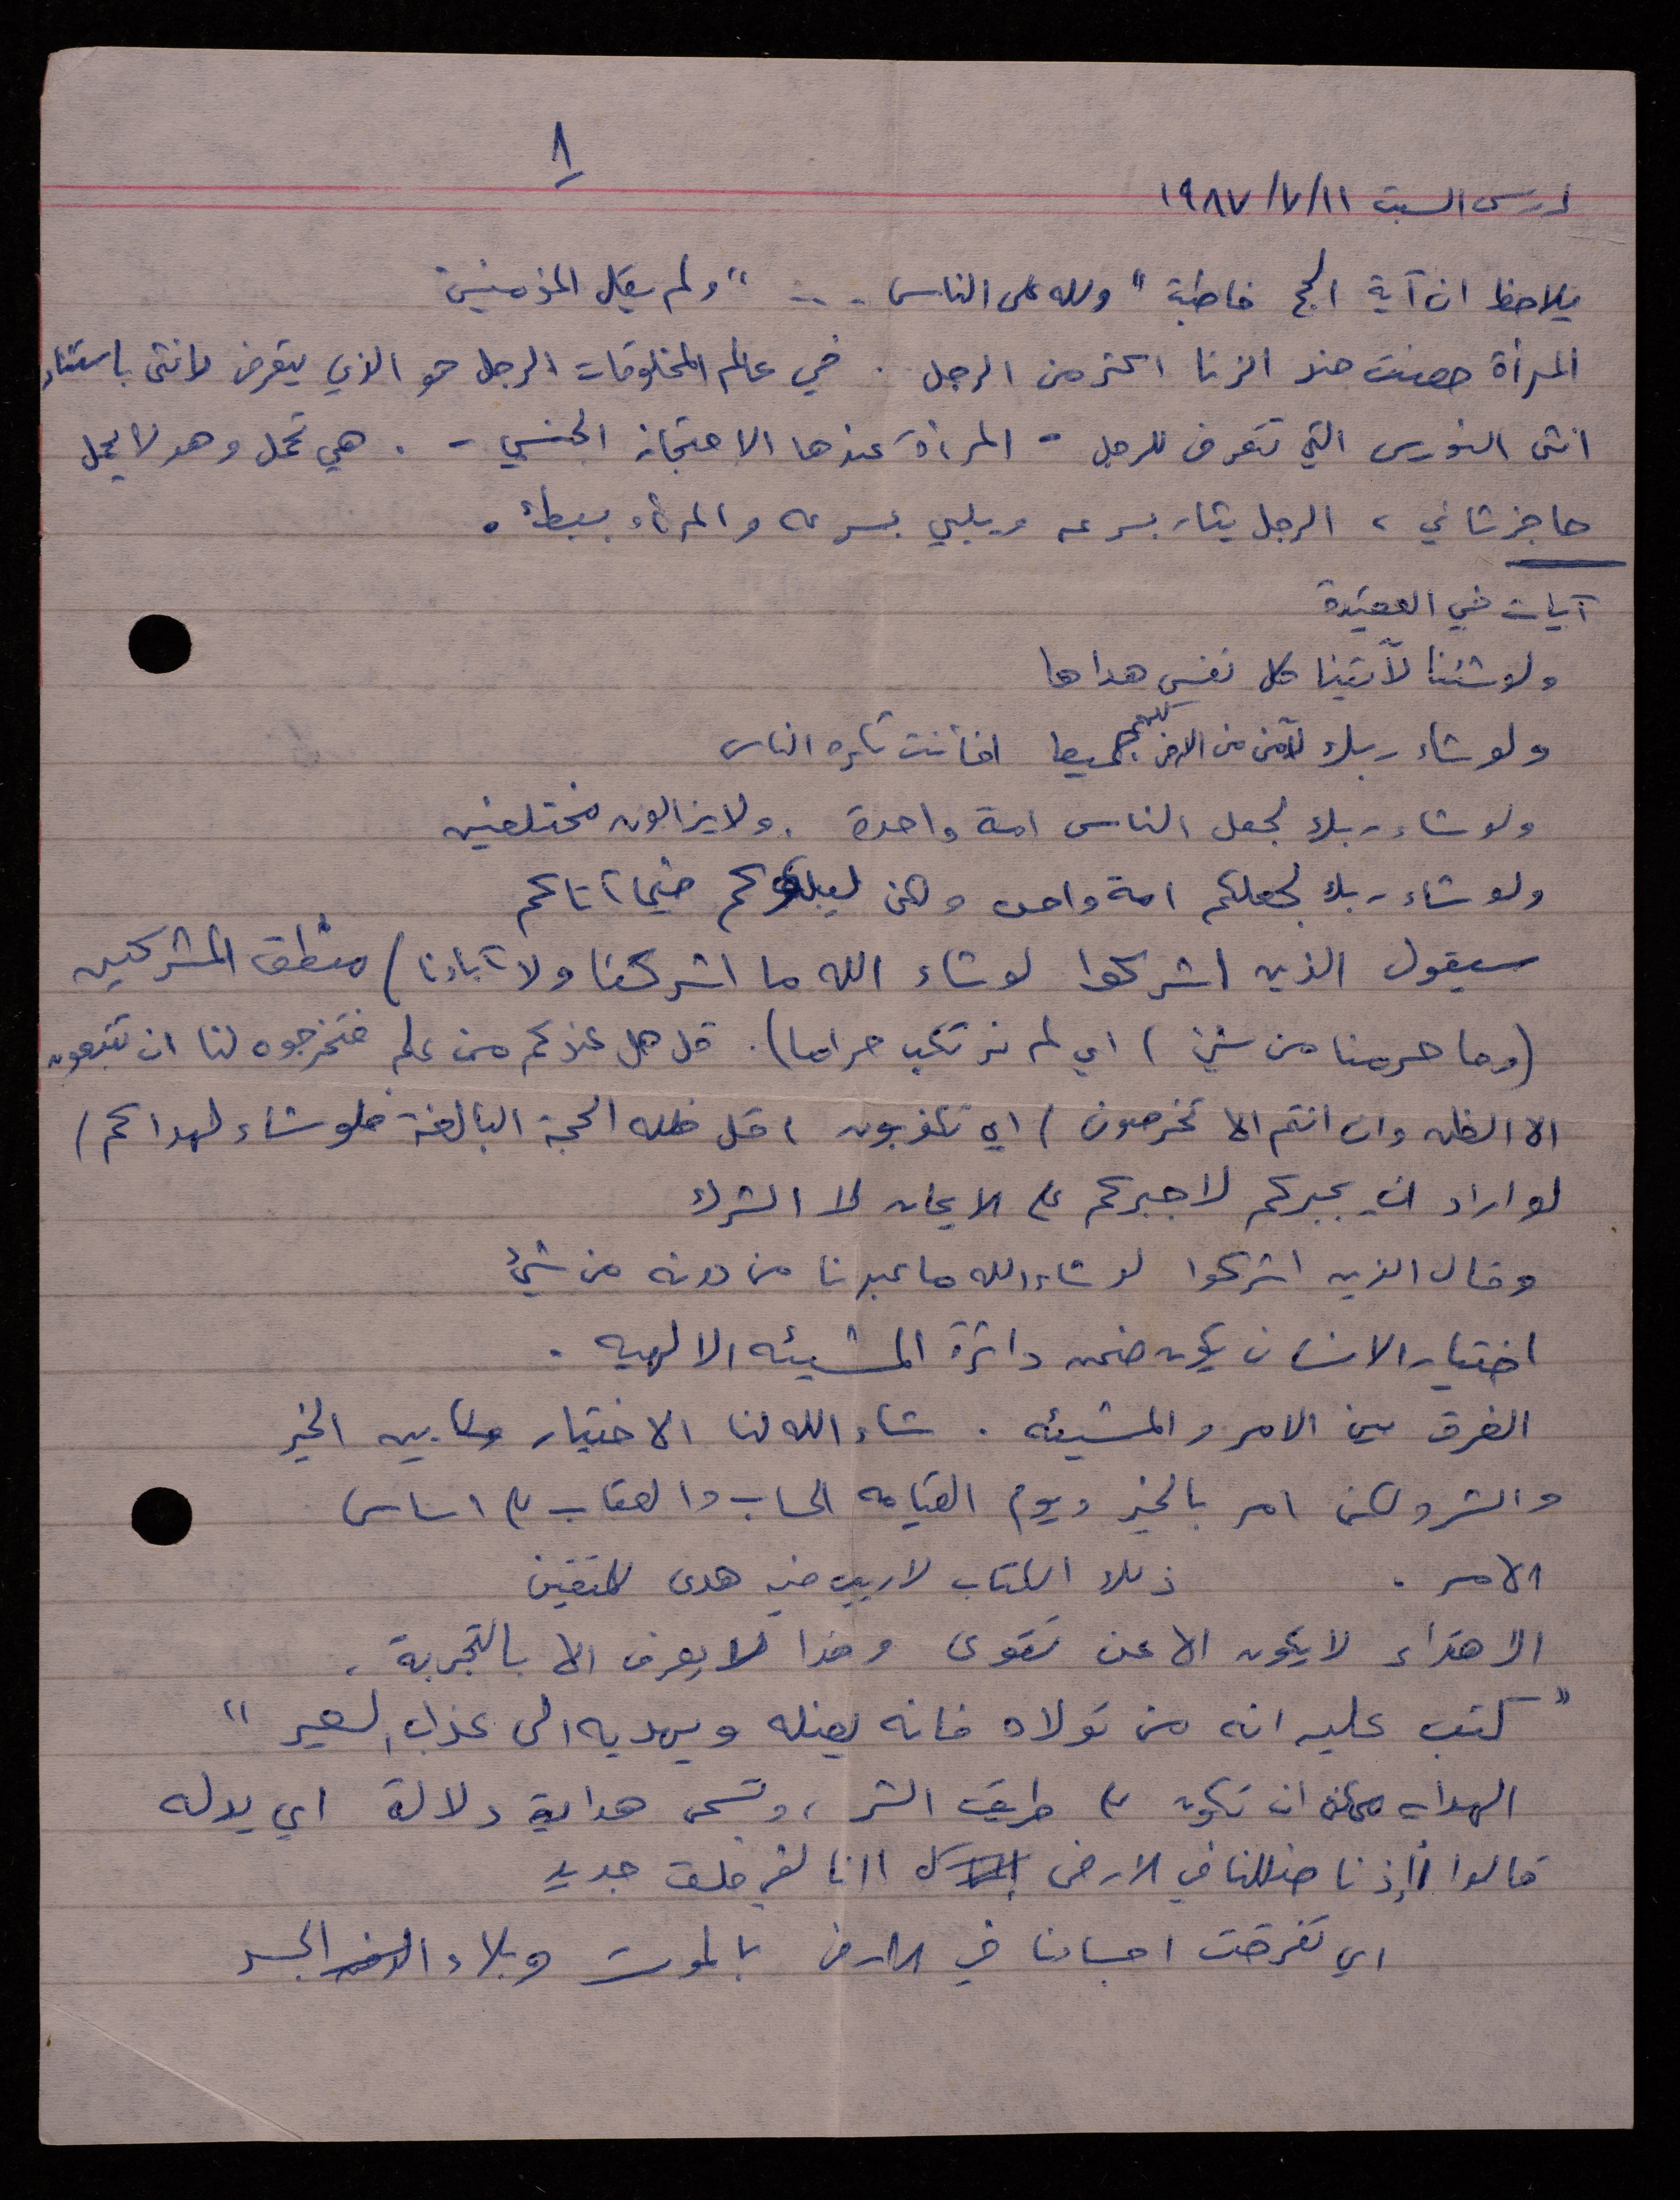 ١
درس السبت ١١/٧/١٩٨٧
يلاحظ ان آية الحج خاطبة "ولله على الناس ..." ولم يقل المؤمنين
المرأة حصنت ضد الزنا اكثر من الرجل . في عالم المخلوقات الرجل هو الذي يتعرض للانثى باستثناء
انثى النورس التي تتعرض للرجل - المرأة عندها الاحتجاز الجنسي - . هي تحمل وهو لا يحمل
حاجز ثاني ، الرجل يثار بسرعه ويلبي بسرعه والمرأه ببطئ .
آيات في العقيدة
ولو شئنا لآتينا كل نفس هداها
ولو شاء ربك لآمن من في الارض كلهم جميعا افأنت تكره الناس
ولو شاء ربك لجعل الناس امة واحدة . ولا يزالون مختلفين
ولو شاء ربك لجعلكم امة واحده ولكن ليبلوكم فيما آتاكم
سيقول الذين اشركوا لو شاء الله ما اشركنا ولا آباؤنا) منطق المشركين
(وما حرمنا من شيئ) اي لم نرتكب حراما). قل هل عندكم من علم فتخرجوه لنا ان تتبعون
الا الظن وان انتم الا تخرصون) اي تكذبون (قل فلله الحجة البالغة فلو شاء لهداكم)
لو اراد ان يجبركم لاجبركم على الايمان لا الشرك
وقال الذين اشركوا لو شاء الله ما عبدنا من دونه من شيئ
اختيار الانسان يكون ضمن دائرة المشيئه الالهيه .
الفرق بين الامر والمشيئه . شاء الله لنا الاختيار ما بين الخير
والشر ولكن امر بالخير ويوم القيامه الحساب والعقاب على اساس
الامر . ذلك الكتاب لا ريب فيه هدى للمتقين
الاهتداء لا يكون الا عن تقوى وهذا لا يعرف الا بالتجربة .
"كتب عليه انه من تولاه فانه يضله ويهديه الى عذاب السعير"
الهدايه ممكن ان تكون على طريق الشر ، وتسمى هداية دلالة اي يدله
قالوا أإذنا ضللنا في الارض اانا لفي خلق جديد
اي تفرقت اجسادنا في الارض بالموت وبلاء الجسد